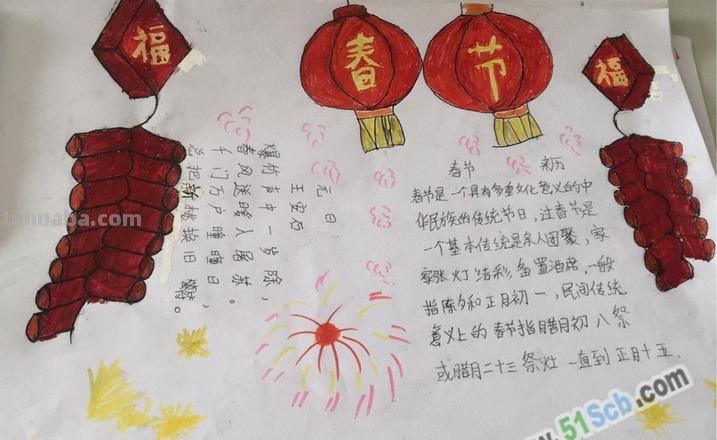 福
春
节
福
元日
王安石
爆竹声中一岁除，
春风送暖入屠苏。
千门万户曈曈日，
总把新桃换旧符。
春节 来历
春节是一个具有多重文化意义的中
华民族的传统节日，过春节是
一个基本传统是亲人团聚，家
家张灯结彩，备置酒席，一般
指除夕和正月初一，民间传统
意义上的春节指腊月初八祭
或腊月二十三祭灶一直到正月十五.
tuhuaba.com
www.51Scb.com